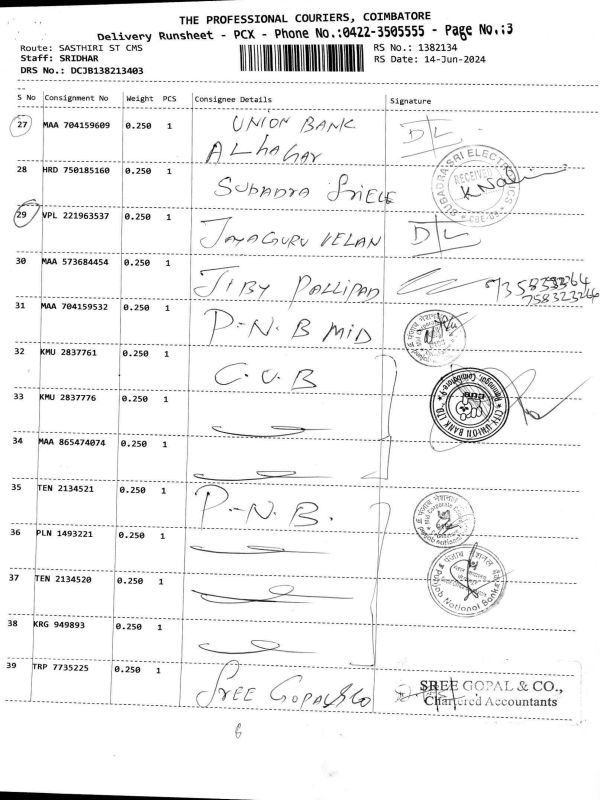 THE PROFESSIONAL COURIERS, COIMBATORE
Delivery Runsheet - PCX - Phone No.:0422-3505555 - Page No.:3
Route: SASTHIRI ST CMS
Staff: SRIDHAR
DRS No.: DCJB138213403
RS No.: 1382134
RS Date: 14-Jun-2024
S No Consignment No Weight PCS Consignee Details Signature
27 MAA 704159609 0.250 1 UNION BANK D/L
ALHAGAR
28 HRD 750185160 0.250 1 SUBADRA SRIELE
SUBADRA SRI ELECTRONICS RECEIVED
29 VPL 221963537 0.250 1 JAYAGURU VELAN D/L
30 MAA 573684454 0.250 1 JIBY PALLIPAD
31 MAA 704159532 0.250 1 P.N.B MID
32 KMU 2837761 0.250 1 C.U.B
CITY UNION BANK LTD CUB Ramnagar, Coimbatore-9
33 KMU 2837776 0.250 1
34 MAA 865474074 0.250 1
35 TEN 2134521 0.250 1 P.N.B.
36 PLN 1493221 0.250 1
37 TEN 2134520 0.250 1
Punjab National Bank
38 KRG 949893 0.250 1
39 TRP 7735225 0.250 1 SREE GOPAL & CO
SREE GOPAL & CO.,
Chartered Accountants